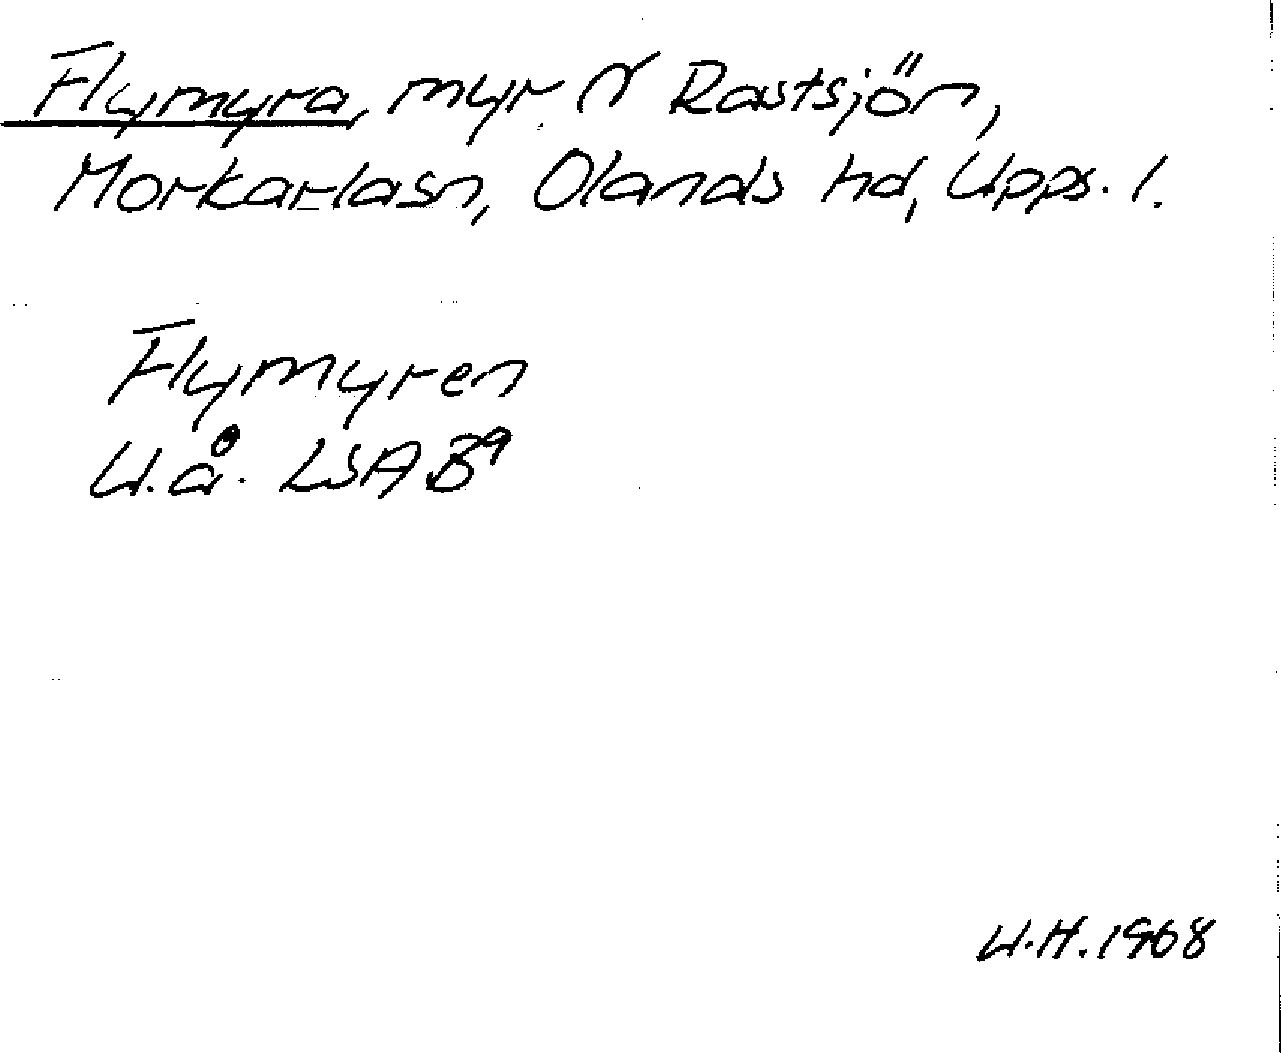 Flymyra, myr N Rastsjön,
Morkarlasn, Olands hd, Upps. l.
Flymyren
u.å. LSA B9
U.H. 1968